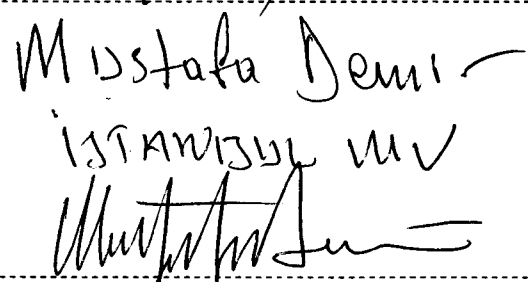 Mustafa Demir
İSTANBUL MV